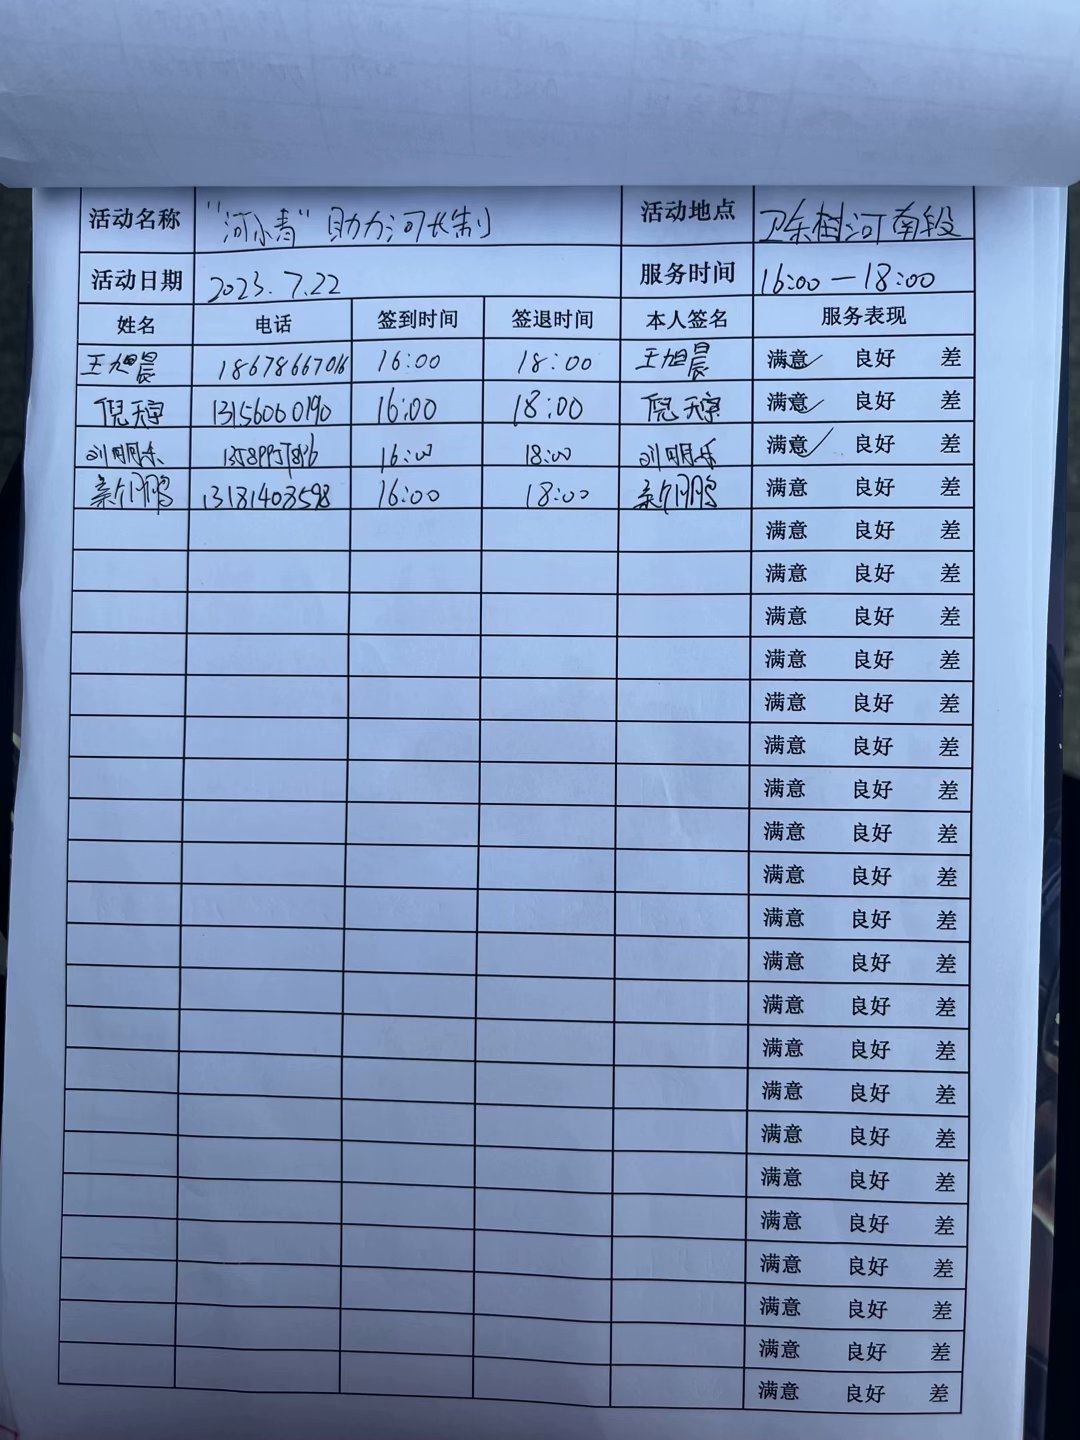 活动名称 “河小青”助力河长制 活动地点 卫东树河南段
活动日期 2023.7.22 服务时间 16:00—18:00
姓名 电话 签到时间 签退时间 本人签名 服务表现
王旭晨 18678667016 16:00 18:00 王旭晨 满意✓ 良好 差
倪天 13156060190 16:00 18:00 倪天 满意✓ 良好 差
刘明乐 16:00 18:00 刘明乐 满意✓ 良好 差
鹏 13181408598 16:00 18:00 鹏 满意 良好 差
满意 良好 差
满意 良好 差
满意 良好 差
满意 良好 差
满意 良好 差
满意 良好 差
满意 良好 差
满意 良好 差
满意 良好 差
满意 良好 差
满意 良好 差
满意 良好 差
满意 良好 差
满意 良好 差
满意 良好 差
满意 良好 差
满意 良好 差
满意 良好 差
满意 良好 差
满意 良好 差
满意 良好 差